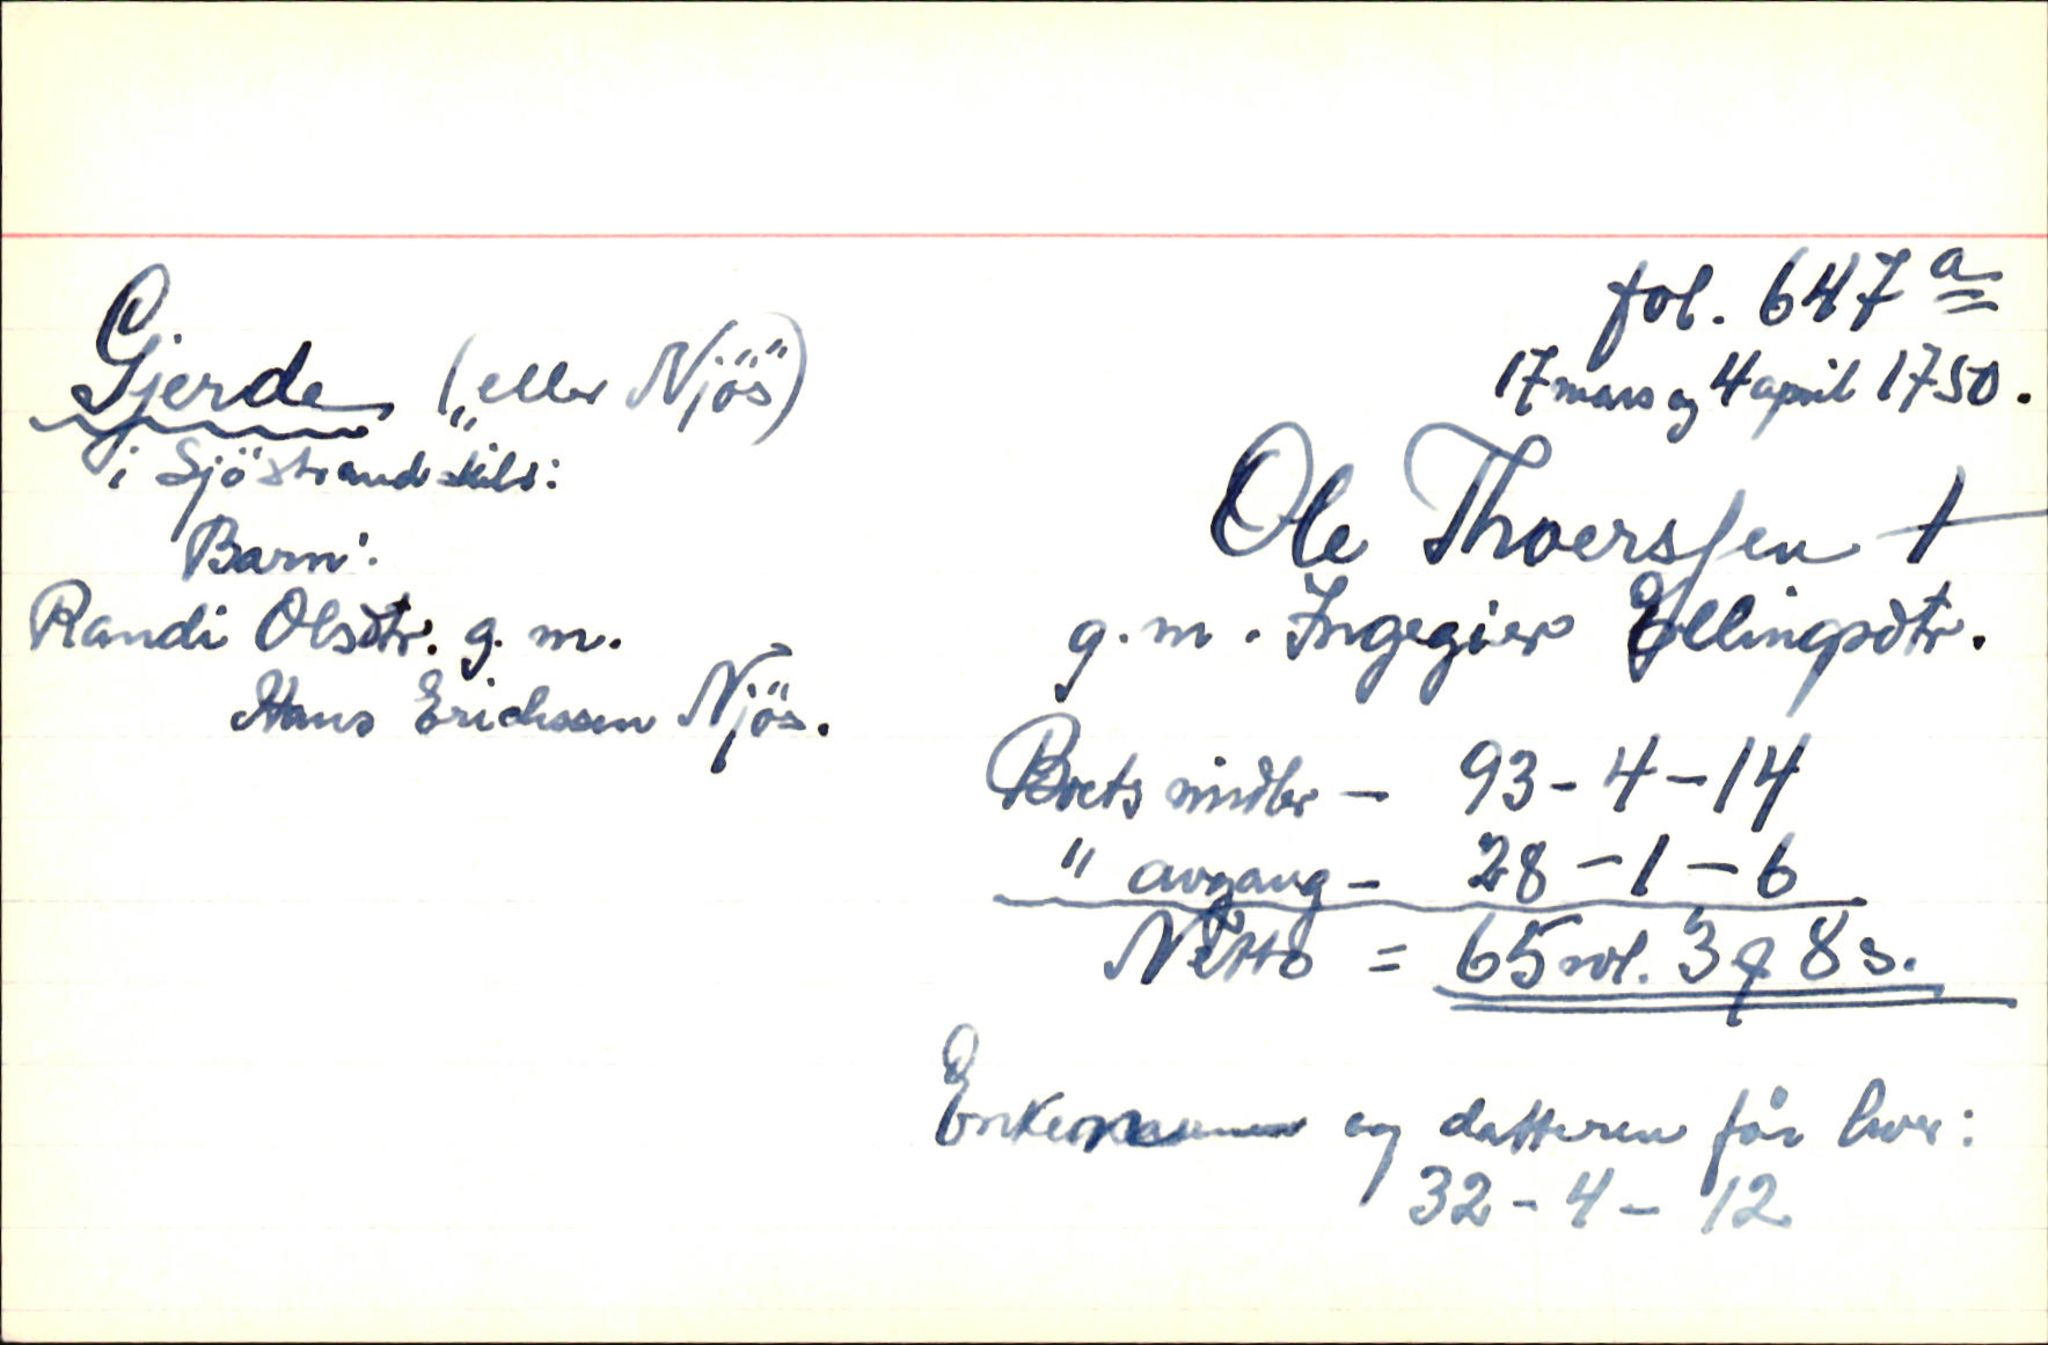 fol. 647 a
17 mars og 4 april 1750.
Gjerde („eller Njös“)
i Sjöstrand skibr:
Barn:
Randi Olsdtr. g. m.
Hans Erichssen Njös.
Ole Thoerssen †
g. m. Ingegier Ellingsdtr.
Boets midler – 93 – 4 – 14
" avgang – 28 – 1 – 6
Netto = 65 rdl. 3 q 8 s.
Enken og datteren får hver:
32 – 4 – 12